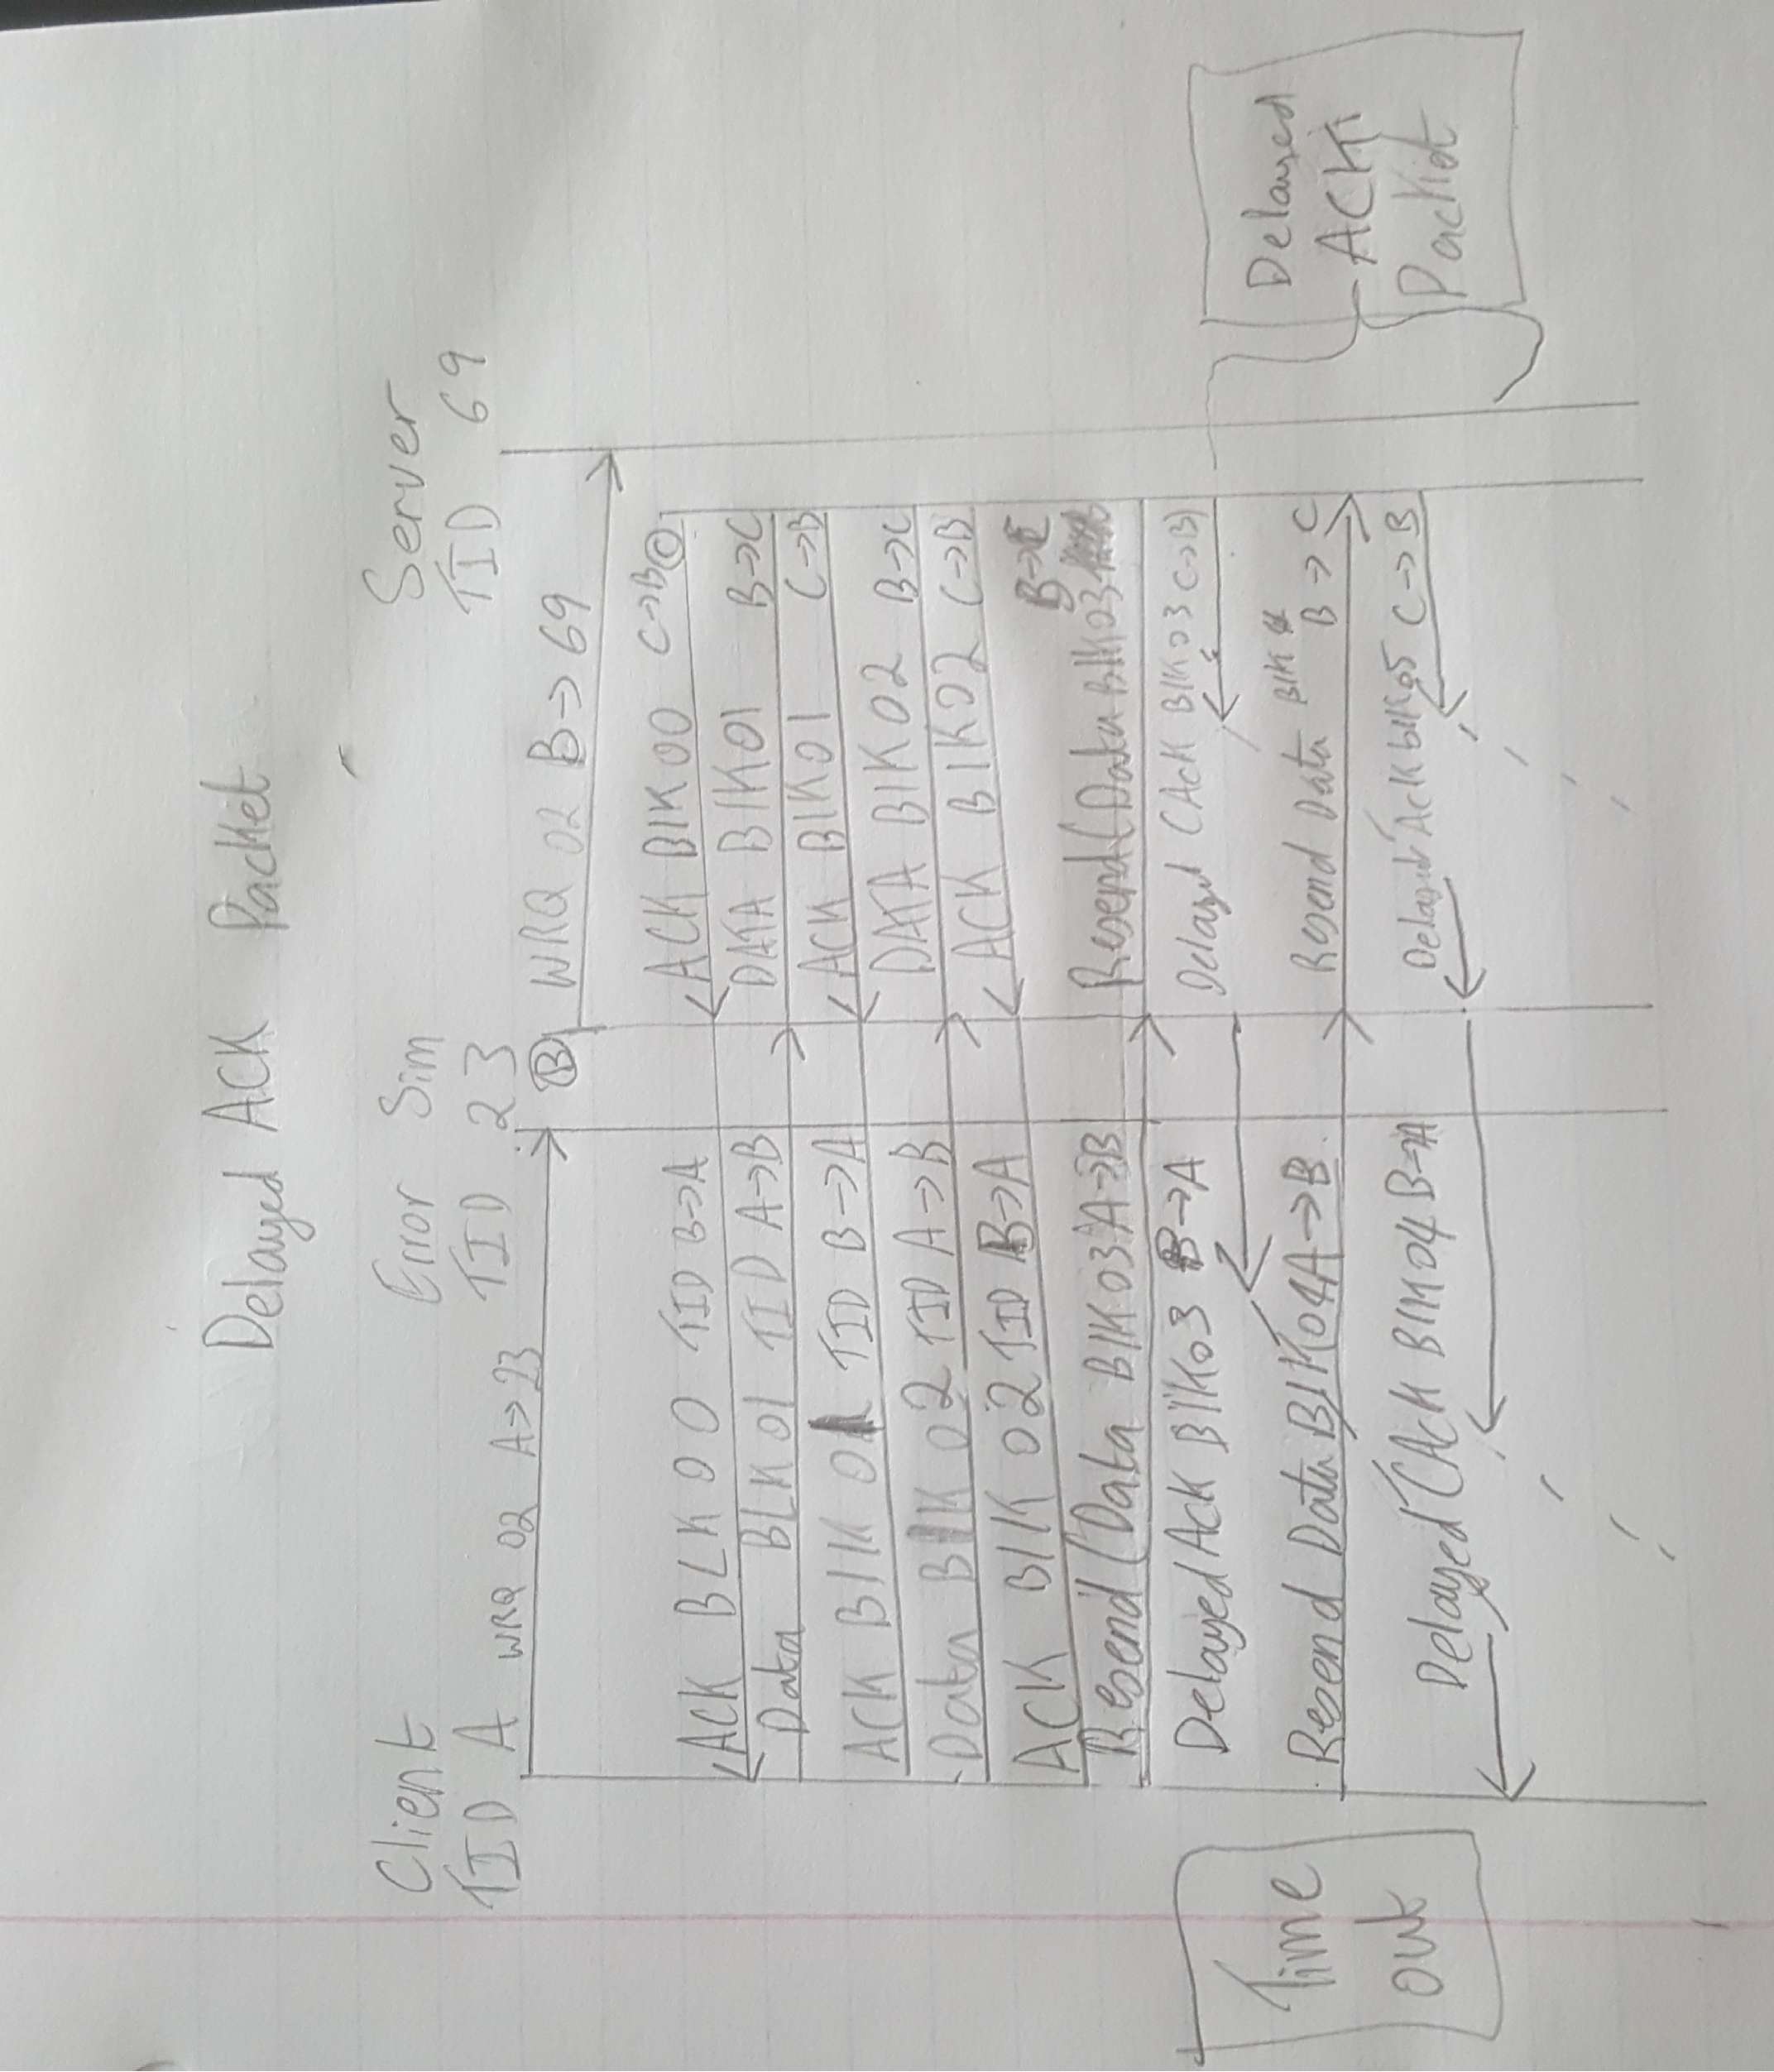 Delayed ACK Packet
Client
TID A
Error Sim
TID 23
Server
TID 69
WRQ 02 A->23
B
WRQ 02 B->69
ACK BLK 00 TID B->A
ACK BlK 00 C->B C
Data BLK 01 TID A->B
DATA BlK01 B->C
ACK BlK 01 TID B->A
ACK BlK01 C->B
Data BlK 02 TID A->B
DATA BlK 02 B->C
ACK BlK 02 TID B->A
ACK BlK02 C->B
Resend (Data BlK03 A->B
Resend (Data BlK03 B->C
Delayed Ack BlK03 B->A
Delayed (Ack BlK03 C->B)
Resend Data BlK04 A->B
Resend Data BlK B->C
Delayed (Ack BlK04 B->A
Delayed Ack blK05 C->B
Time
out
Delayed
ACK
Packet